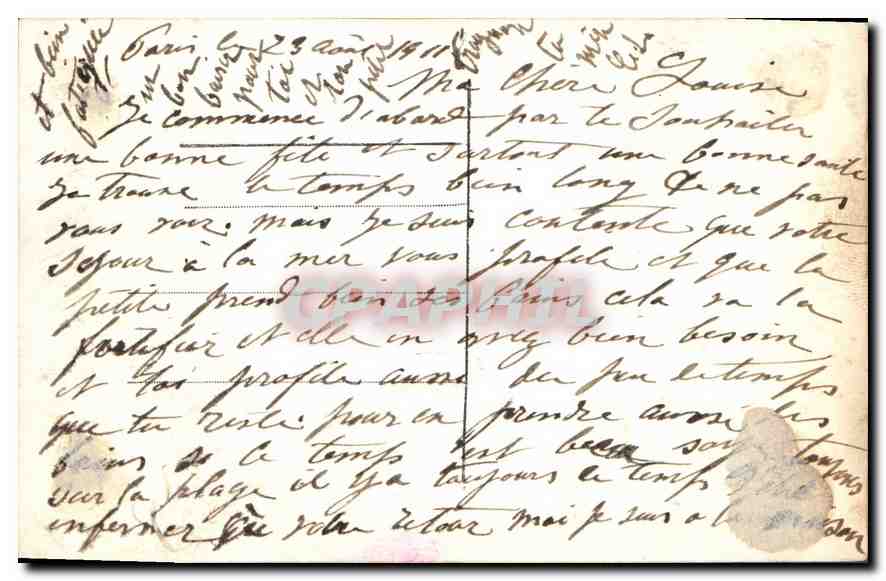 Paris le 23 août 1911
Ma chère Louise
Je commence d'abord par te souhaiter
une bonne fête et surtout une bonne santé
Je trouve le temps bien long de ne pas
vous voir. mais je suis contente que votre
séjour à la mer vous profite et que la
petite prend bien ses bains cela va la
fortifier et elle en avez bien besoin
et toi profite aussi du peu de temps
que tu reste pour en prendre aussi les
bains si le temps est beau soit toujours
sur la plage il y a toujours le temps
enfermer que votre retour moi je suis à la maison
et bien fatiguée
un bon baiser pour toi et ton père
la mère
CPAPHIL